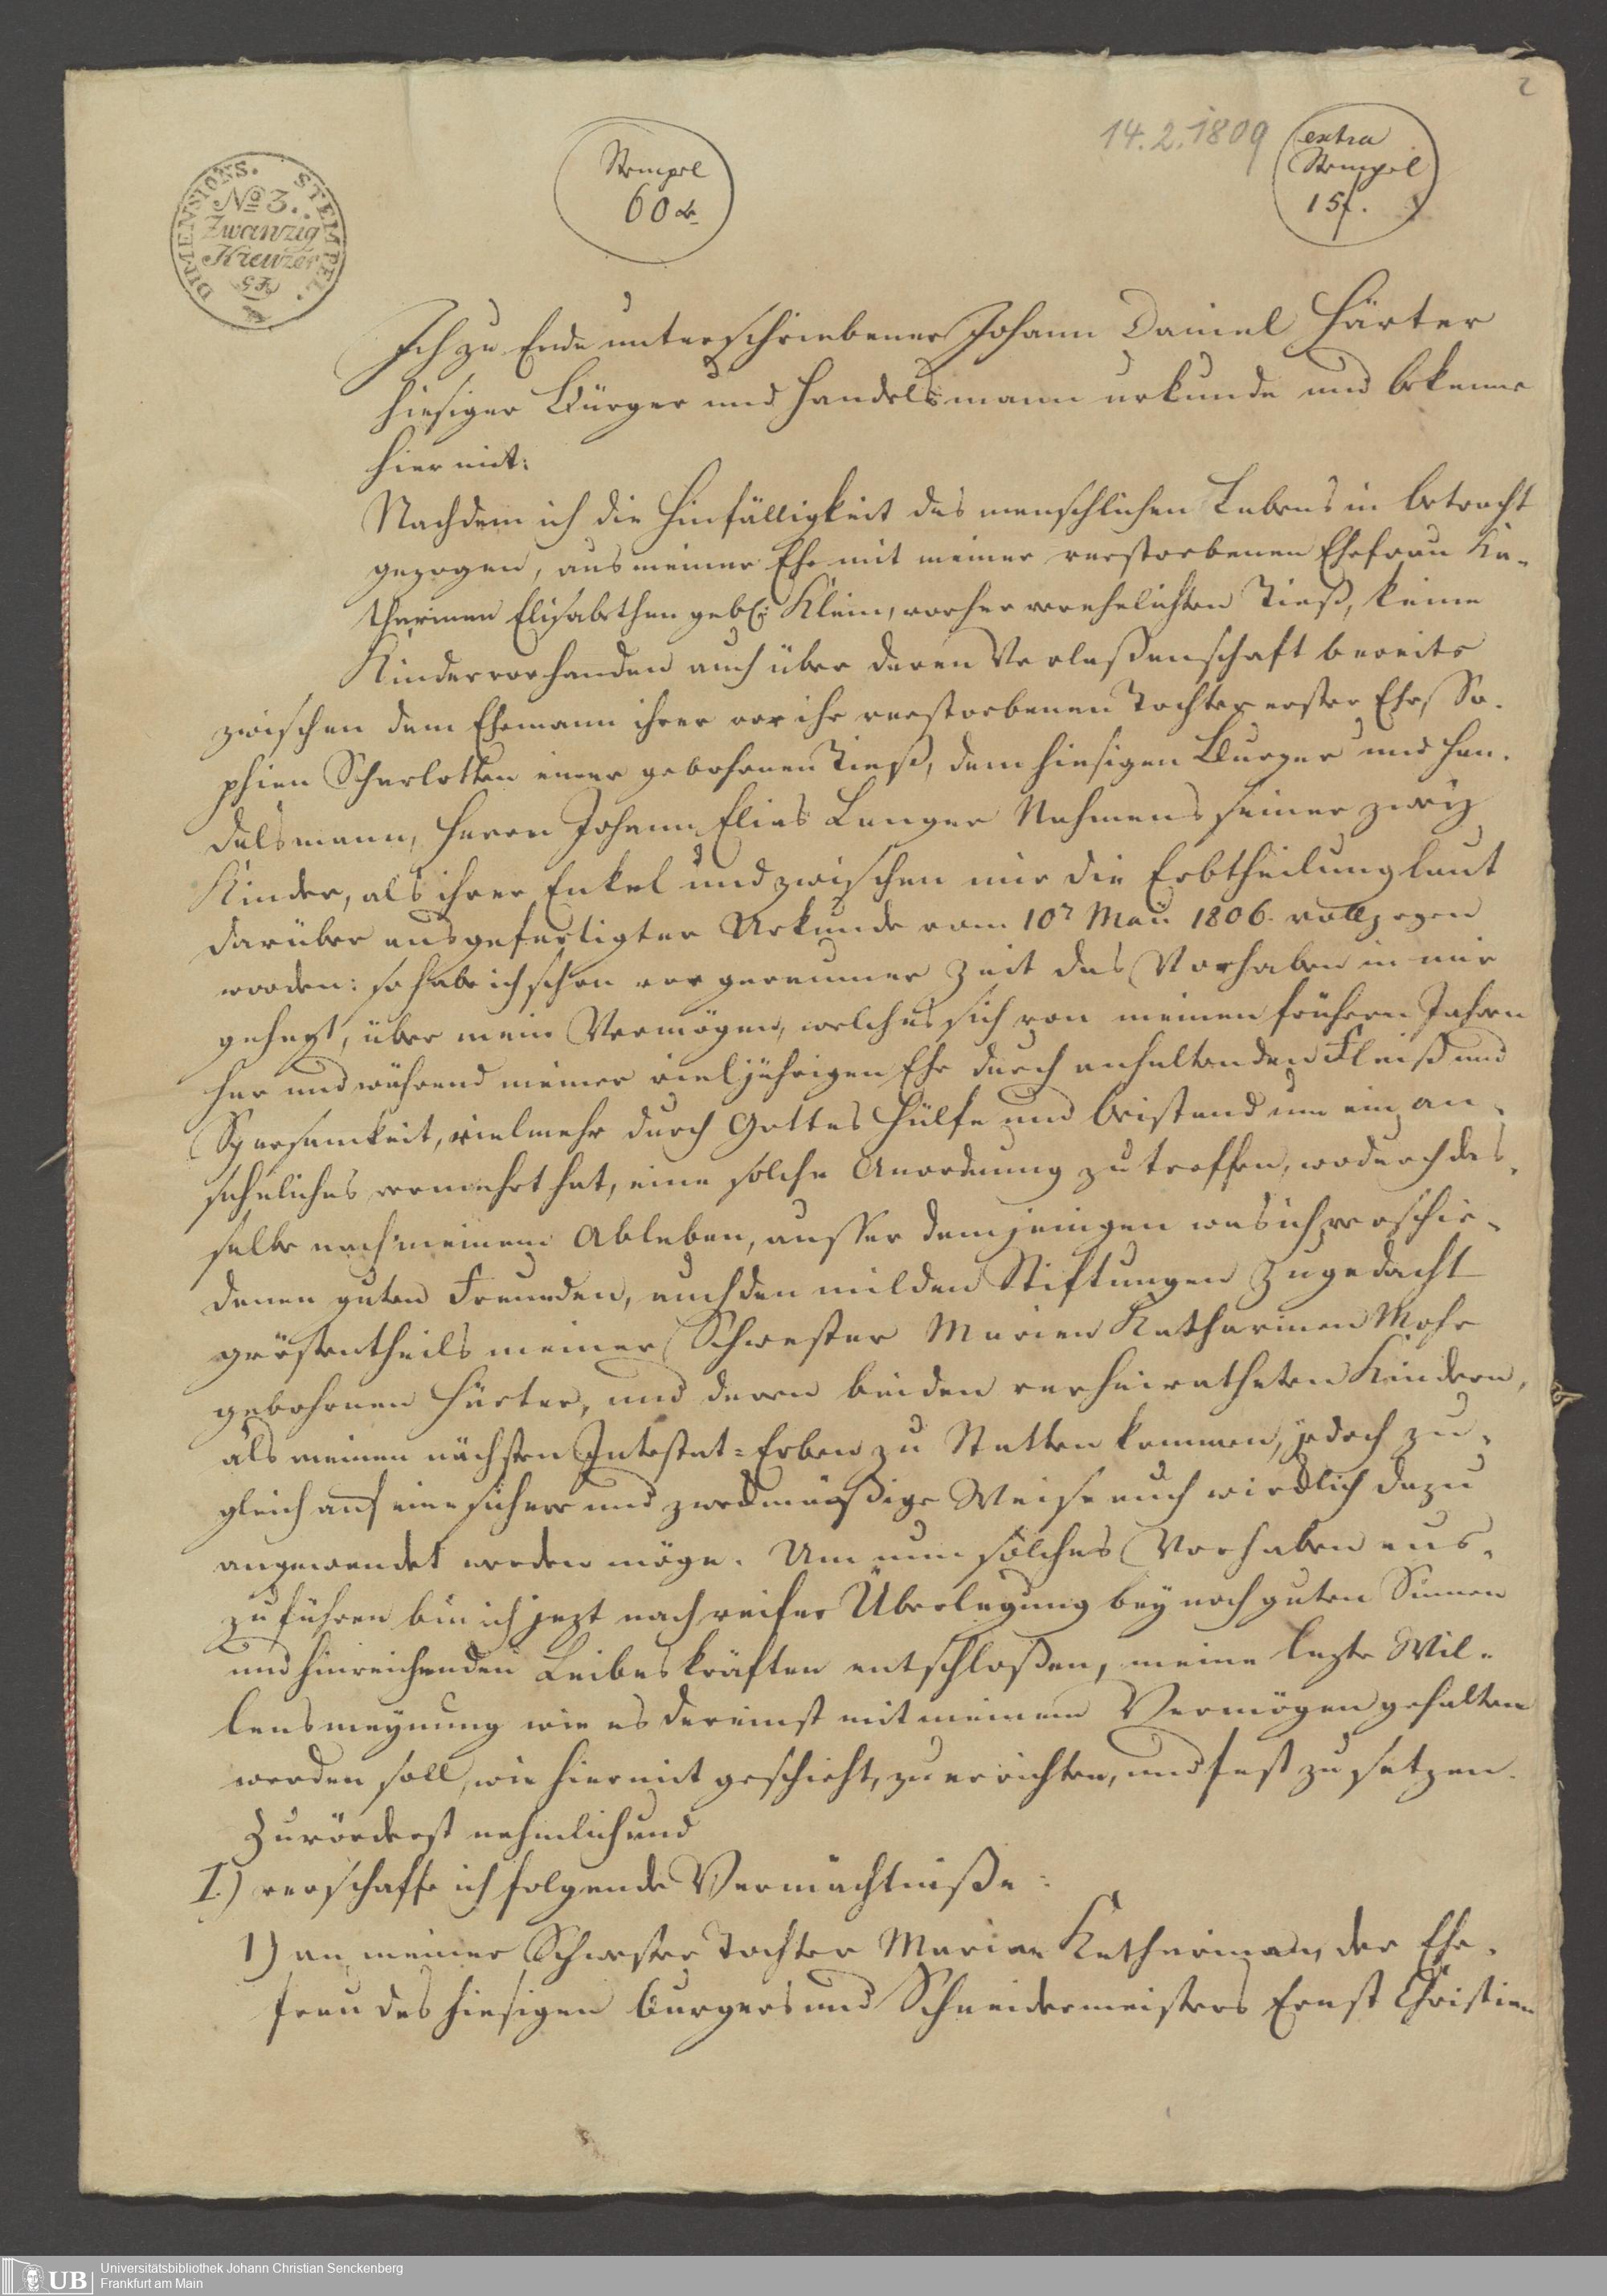 2
14.2.1809
DIMENSIONS. STEMPEL.
No 3.
Zwanzig
Kreuzer
Stempel
60 xr
extra
Stempel
15 f.
Ich zu Ende unterschriebener Johann Daniel Härter
hiesiger Bürger und Handelsmann urkunde und bekenne
hiermit:
Nachdem ich die Hinfälligkeit des menschlichen Lebens in betracht
gezogen, aus meiner Ehe mit meiner verstorbenen Ehefrau Ka-
tharinen Elisabethen geb. Klein, vorher verehelichten Tieß, keine
Kinder vorhanden auch über deren Verlaßenschaft bereits
zwischen dem Ehemann ihrer vor ihr verstorbenen Tochter erster Ehe, So-
phien Scharlotten einer gebohrnen Tieß, dem hiesigen Burger und Han-
delsmann, Herrn Johann Elias Langer Nahmens seiner zwey
Kinder, als ihrer Enkel und zwischen mir die Erbtheilung laut
darüber ausgefertigter Urkunde vom 10r Maii 1806. vollzogen
worden: so habe ich schon vor geraumer Zeit das Vorhaben in mir
gehegt, über mein Vermögen, welches sich von meinen frühern Jahren
her und während meiner vieljährigen Ehe durch anhaltenden Fleiß und
Sparsamkeit, vielmehr durch Gottes Hülfe und beistand um ein an-
sehnliches vermehrt hat, eine solche Anordnung zu treffen, wodurch das-
selbe nach meinem Ableben, ausser demjenigen was ich verschie-
denen guten Freunden, auch den milden Stiftungen zugedacht
gröstentheils meiner Schwester Marien Katharinen Mohr
gebohrnen Härter, und deren beiden verheiratheten Kindern,
als meinen nächsten Intestat-Erben zu Statten kommen, jedoch zu-
gleich auf eine sichere und zweckmäßige Weise auch wircklich dazu
angewendet werden möge. Um nun solches Vorhaben aus-
zuführen bin ich jezt nach reifer Überlegung bey noch guten Sinnen
und hinreichenden Leibeskräften entschloßen, meine lezte Wil-
lensmeynung wie es dereinst mit meinem Vermögen gehalten
werden soll, wie hiermit geschieht, zu errichten, und fest zu setzen.
Zuvörderst nehmlich und
I.) verschaffe ich folgende Vermächtniße:
1) an meiner Schwester Tochter Marien Katharinen, der Ehe-
frau des hiesigen burgers und Schneidermeisters Ernst Christian
UB
Universitätsbibliothek Johann Christian Senckenberg
Frankfurt am Main